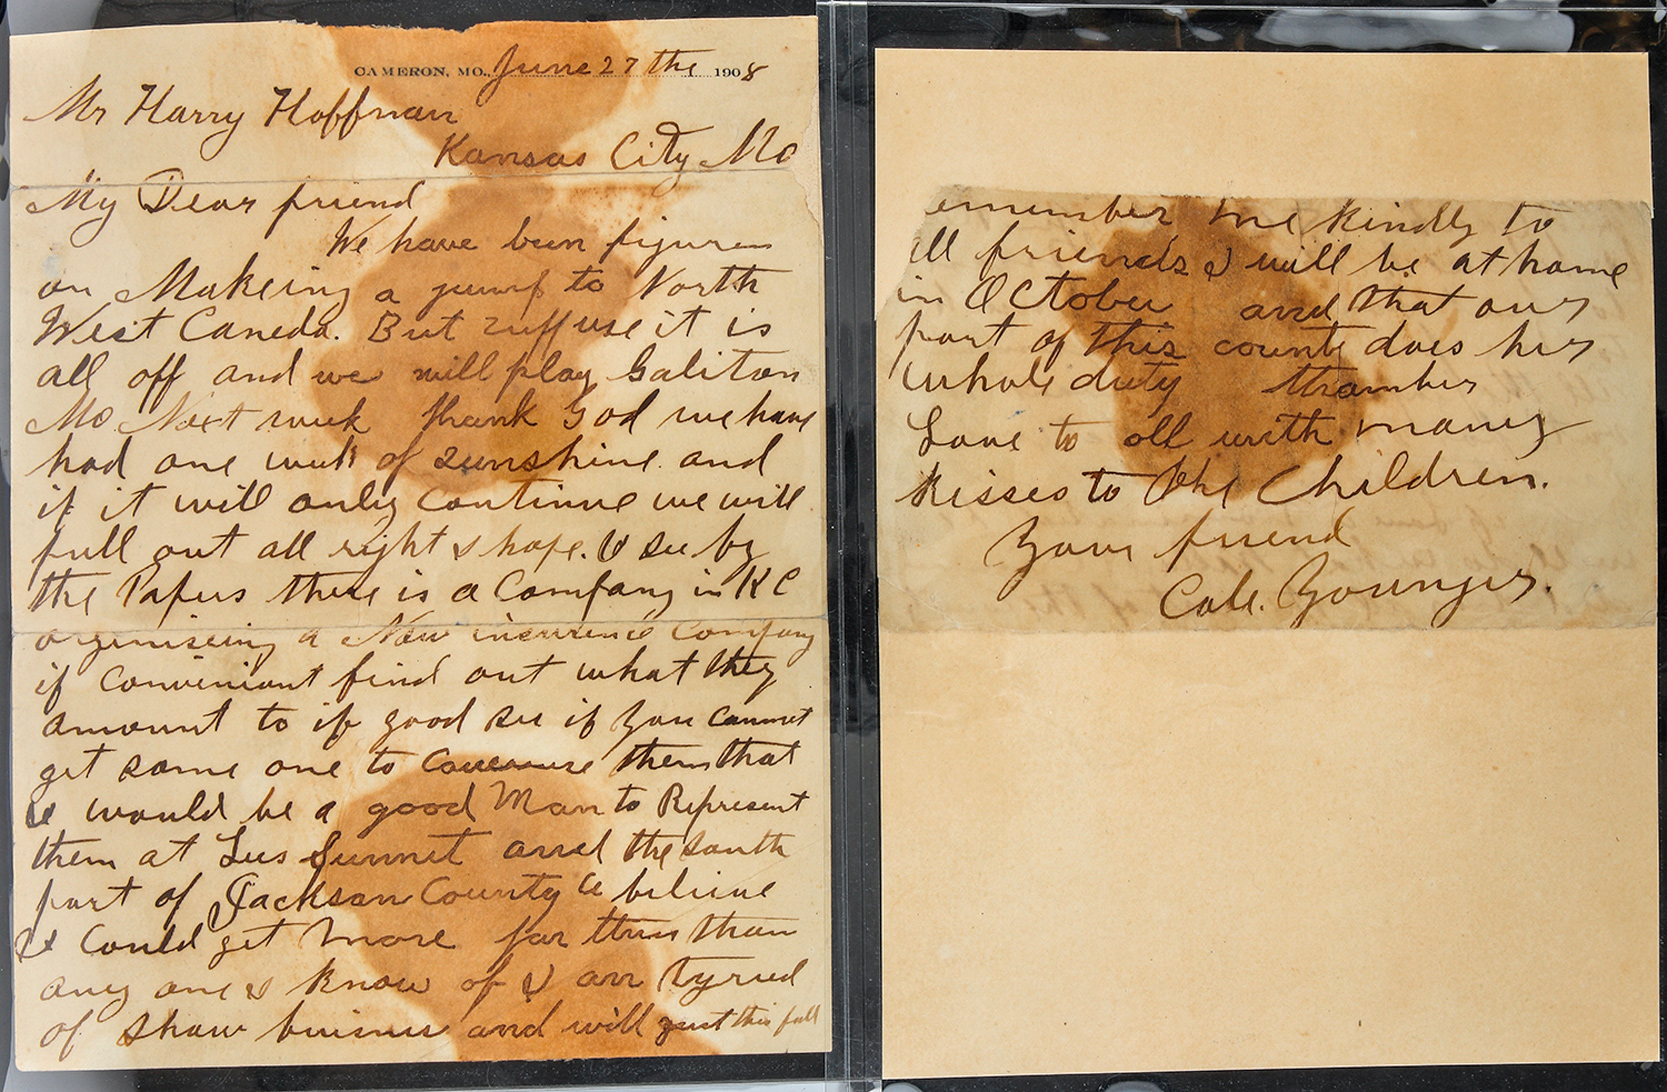 CAMERON, MO., June 27 the 1908
Mr Harry Hoffman
Kansas City Mo
My Dear friend
We have been figuren
on Makeing a jump to North
West Caneda. But suffuse it is
all off and we will play Galiton
Mo Next week thank God we have
had one week of sunshine and
if it will only continue we will
pull out all right I hope. I see by
the Papers there is a Company in KC
organiseing a New insurence Company
if Conveniant find out what they
amount to if good see if you cannot
get some one to them that
I would be a good Man to Represent
them at Lees Summet and the south
part of Jackson County I believe
I Could get more for them than
any one I know of I am tyred
of show buisness and will quit this fall
emember me kindly to
ll friends I will be at home
in October and that our
part of this county does her
whole duty
Love to all with many
kisses to the Children.
Your friend
Cole. Younger.